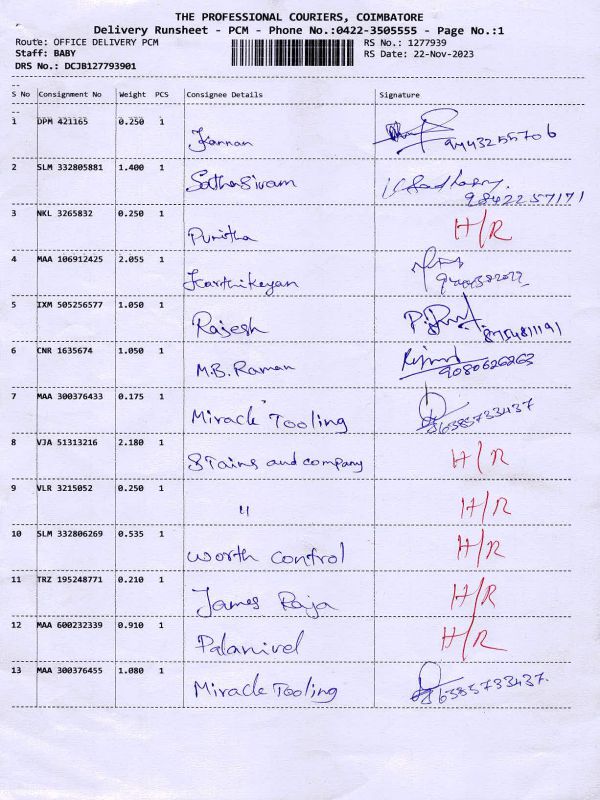 THE PROFESSIONAL COURIERS, COIMBATORE
Delivery Runsheet - PCM - Phone No.:0422-3505555 - Page No.:1
Route: OFFICE DELIVERY PCM RS No.: 1277939
Staff: BABY RS Date: 22-Nov-2023
DRS No.: DCJB127793901
S No Consignment No Weight PCS Consignee Details Signature
1 DPM 421165 0.250 1 Kannan 9443255706
2 SLM 332805881 1.400 1 Sathasivam 9842257171
3 NKL 3265832 0.250 1 Punitha H/R
4 MAA 106912425 2.055 1 Karthikeyan
5 IXM 505256577 1.050 1 Rajesh 8754811191
6 CNR 1635674 1.050 1 M.B. Raman 9080626263
7 MAA 300376433 0.175 1 Miracle Tooling 6385733437
8 VJA 51313216 2.180 1 STains and company H/R
9 VLR 3215052 0.250 1 " H/R
10 SLM 332806269 0.535 1 worth control H/R
11 TRZ 195248771 0.210 1 James Raja H/R
12 MAA 600232339 0.910 1 Palanivel H/R
13 MAA 300376455 1.080 1 Miracle Tooling 6385733437.